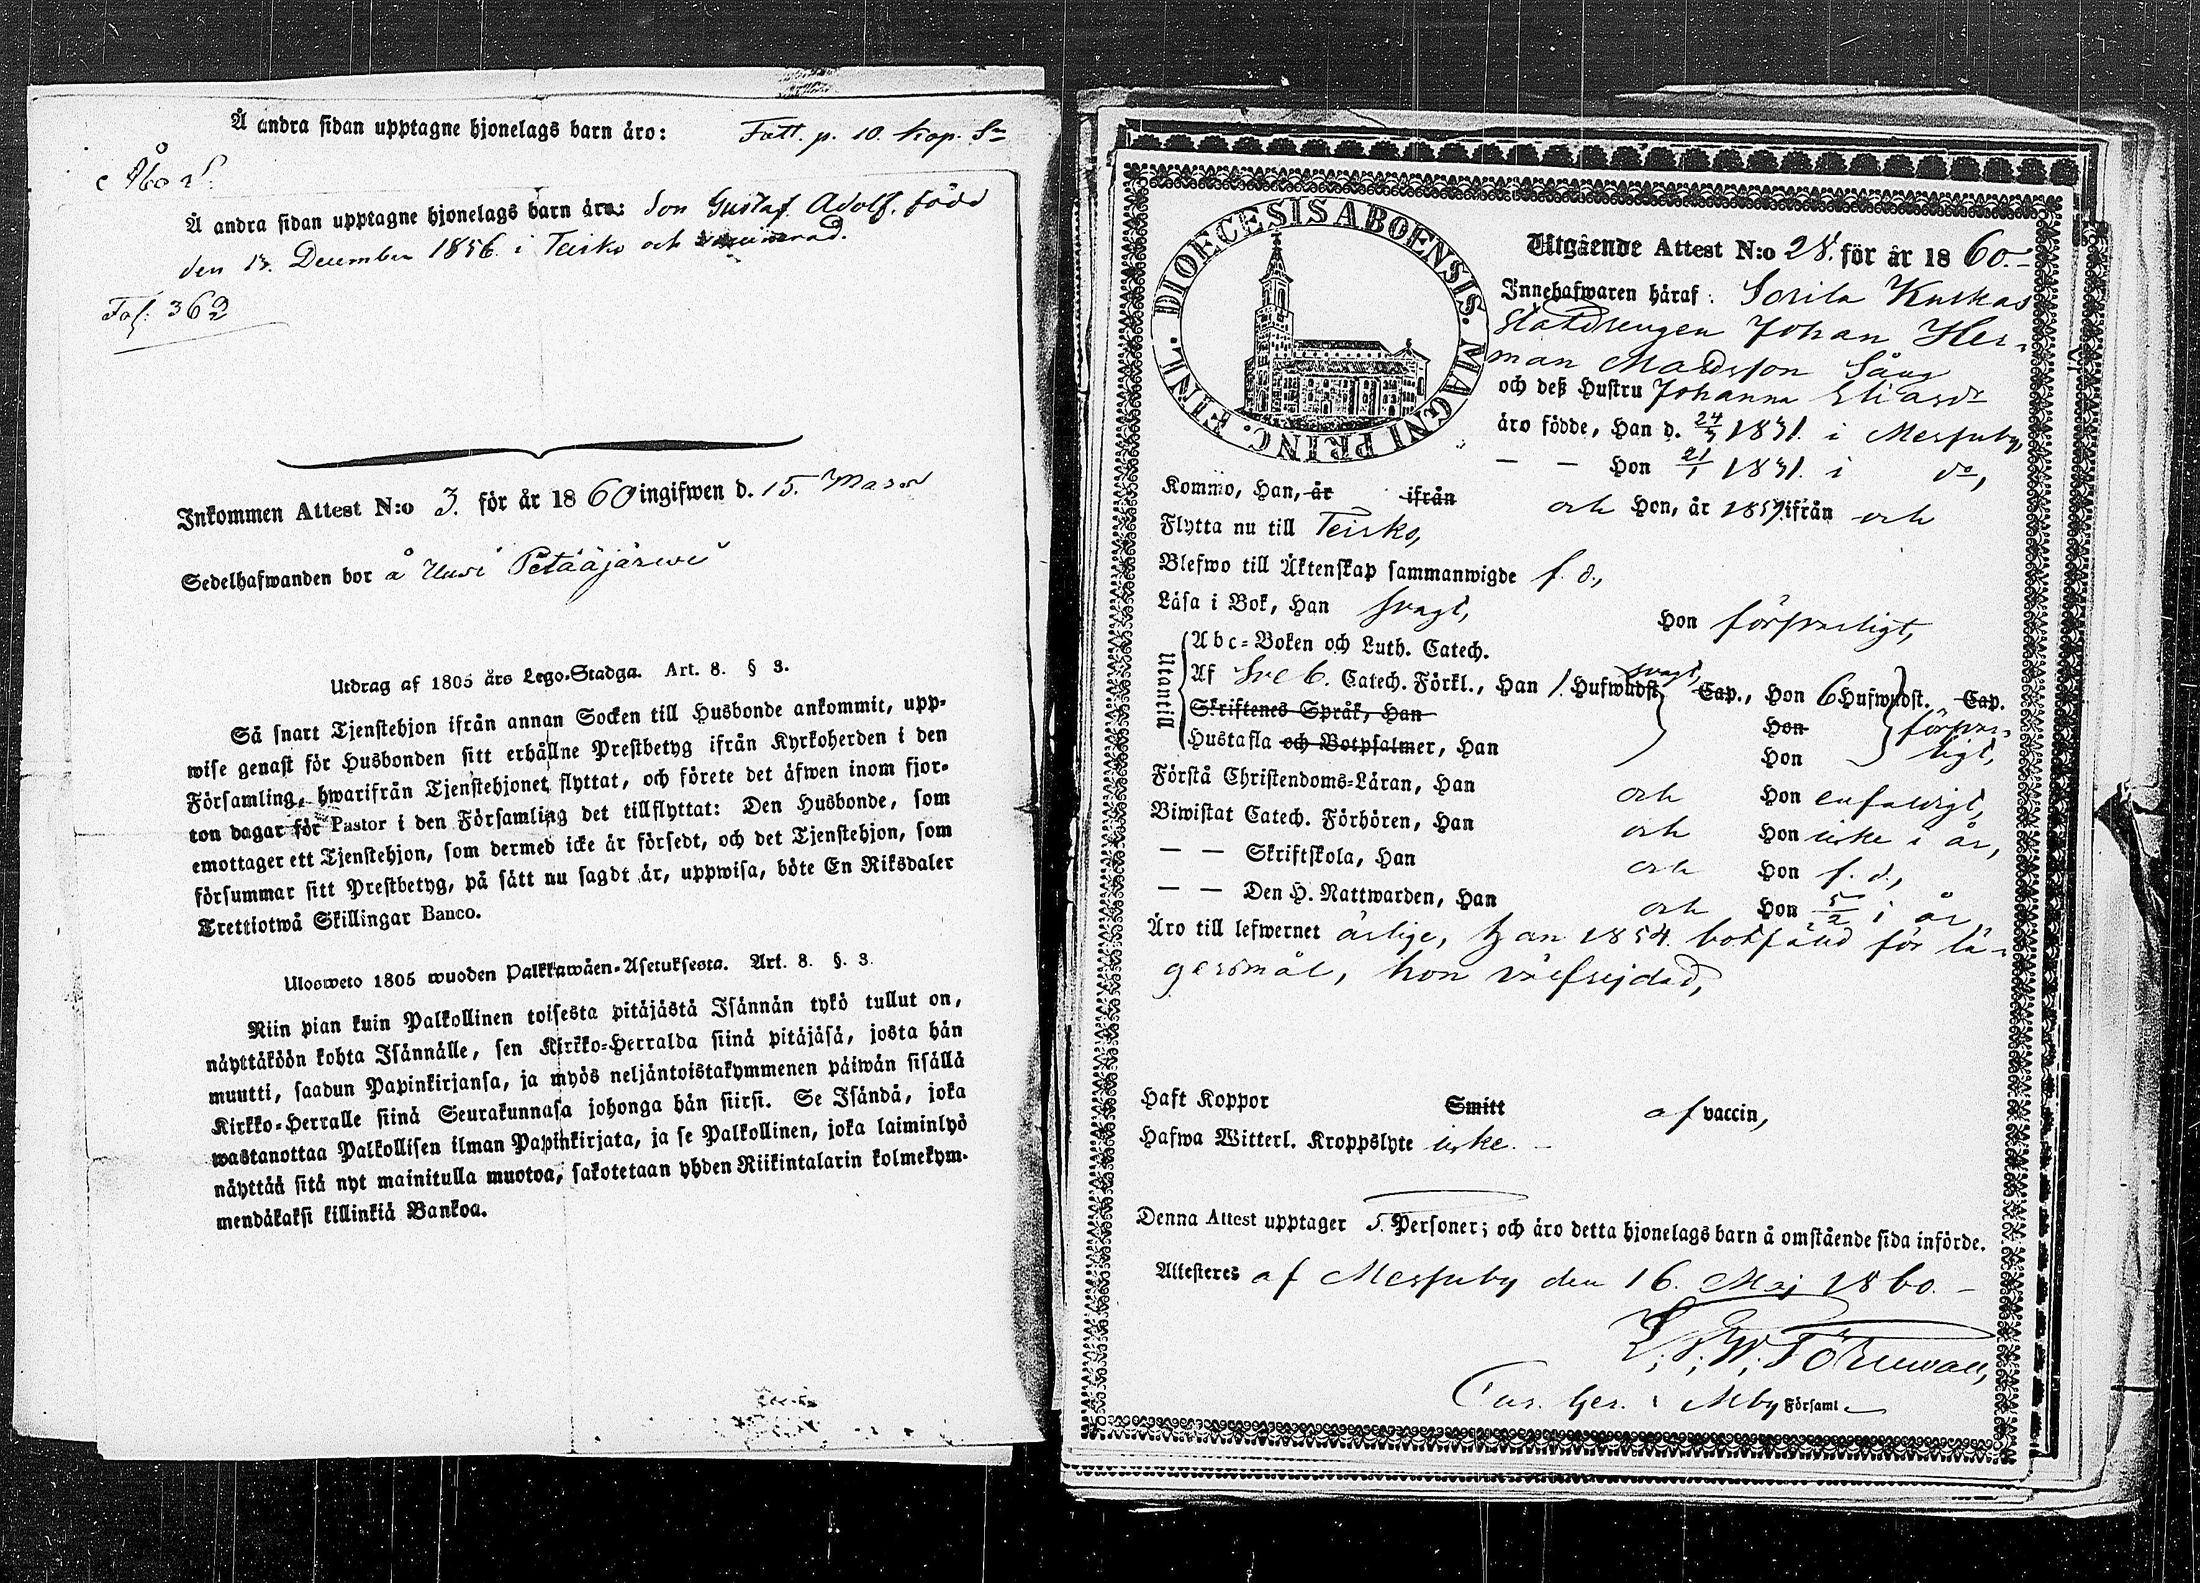 Å andra sidan upptagne hjonelags barn äro: Fatt. p. 10. kop. Sr
Å andra sidan upptagne hjonelags barn äro: Son Gustaf Adolf, född
den 13. December 1856 i Teisko och vaccinerad.
Fol: 362
Inkommen Attest N:o 3. för år 1860 ingifwen d. 15. Mars
Sedelhafwanden bor å Uusi Petääjärwi
Utdrag af 1805 års Lego-Stadga. Art. 8. § 3.
Så snart Tjenstehjon ifrån annan Socken till Husbonde ankommit, upp-
wise genast för Husbonden sitt erhållne Prestbetyg ifrån Kyrkoherden i den
Församling, hwarifrån Tjenstehjonet flyttat, och förete det äfwen inom fjor-
ton dagar för Pastor i den Församling det tillflyttat: Den Husbonde, som
emottager ett Tjenstehjon, som dermed icke är försedt, och det Tjenstehjon, som
försummar sitt Prestbetyg, på sätt nu sagdt är, uppwisa, böte En Riksdaler
Trettiotwå Skillingar Banco.
Ulosweto 1805 wuoden Palkkawäen-Asetuksesta. Art. 8. §. 3.
Niin pian kuin Palkollinen toisesta pitäjästä Isännän tykö tullut on,
näyttäköön kohta Isännälle, sen Kirkko-Herralda siinä pitäjäsä, josta hän
muutti, saadun Papinkirjansa, ja myös neljäntoistakymmenen päiwän sisällä
Kirkko-Herralle siinä Seurakunnasa johonga hän siirsi. Se Isändä, joka
wastanottaa Palkollisen ilman Papinkirjata, ja se Palkollinen, joka laiminlyö
näyttää sitä nyt mainitulla muotoa, sakotetaan yhden Riikintalarin kolmekym-
mendäkaksi killinkiä Bankoa.
DIOECESIS ABOENSIS. MAGNI PRINC. FINL.
Utgående Attest N:o 28. för år 1860.
Innehafwaren häraf: Sorila Kuskas
Statdrengen Johan Her-
man Mattsson Sång
och deß Hustru Johanna Eliasdr
äro födde, Han d. 24/5 1831. i Messuby,
— — Hon 21/1 1831. i do,
Kommo, Han, år ifrån och Hon, år 1857 ifrån och
Flytta nu till Teisko,
Blefwo till Äktenskap sammanwigde f. d.,
Läsa i Bok, Han svagt, Hon försvarligt,
Utantill
Abc-Boken och Luth. Catech.
Af Sve b. Catech. Förkl., Han 1. Hufwudst. svagt, Cap., Hon 6 Hufwudst. Cap.
Skriftenes Språk, Han Hon försvar-
Hustafla och Botpsalmer, Han Hon ligt,
Förstå Christendoms-Läran, Han och Hon enfaldigt,
Biwistat Catech. Förhören, Han och Hon icke i år,
— — Skriftskola, Han och Hon f. d.,
— — Den H. Nattwarden, Han och Hon 5/2 i år,
Äro till lefwernet ärlige, han 1854. bokfäld för lä-
gersmål, hon välfrejdad,
Haft Koppor Smitt af vaccin,
Hafwa Witterl. Kroppslyte icke.
Denna Attest upptager 3. Personer; och äro detta hjonelags barn å omstående sida införde.
Attesteres af Messuby den 16. Maj 1860.
Mby Församl